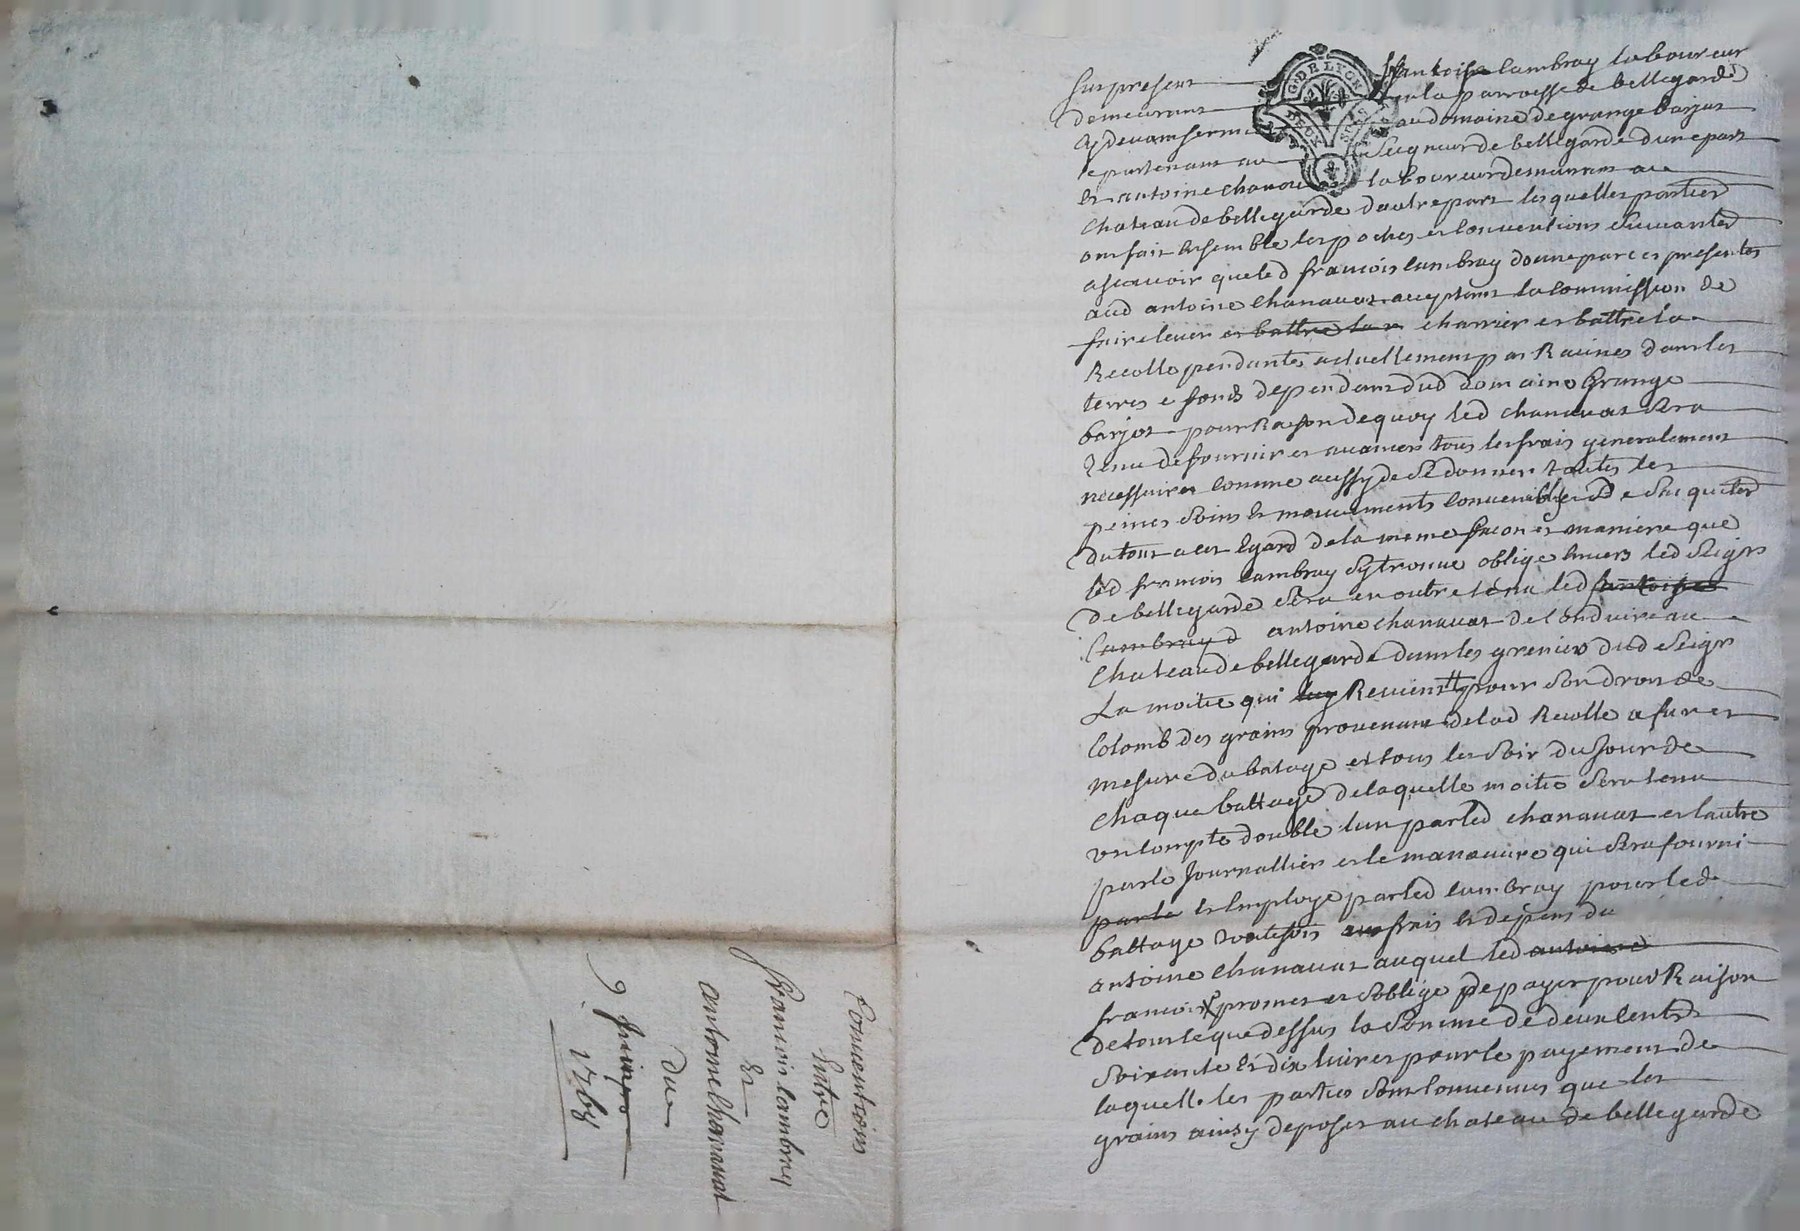 Sus present françois lambray laboureur
demeurant en la parroisse de bellegarde
cy devant fermier au domaine de grange barjot
apartenant au Seigneur de bellegarde d'une part
Et antoine chanavat laboureur demeurant au
Chateau de bellegarde dautre part lesquelles parties
ont fait ensemble les pactes et Conventions Suivantes
ascavoir que led françois lambray donne par ces presentes
aud antoine chanavat acceptant la commission de
faire lever et battre la charrier et battre la
Recolte pendante actuellement par Racines dans les
terres et fonds dependant dud domaine Grange
barjot pour Raison de quoy led chanavat Sera
tenu de fournir et avancer tous les frais generalement
necessaires comme aussy de Se donner toutes les
peines Soins Et mouvements Convenables De Sacquiter
du tout a cet Egard de la meme facon et maniere que
led francois lambray Sy trouve oblige Envers led Seigr
de bellegarde Sera en outre tenu led françois
Lambrayd antoine chanavat de Conduire au
Chateau de bellegarde dans les greniers dud Seigr
La moitie qui luy Revient pour Son droit de
Colomb des grains provenant de lad Recolte a fur et
mesure du batage et tous les Soir du Jour de
chaque battage de laquelle moitie Sera tenu
un Compte double lun par led chanavat et lautre
par le Journallier et le manœuvre qui Sera fourni
par le Et Employe par led lambray pour led
battage toutefois aux frais Et depens du
antoine Chanavat auquel led antoine
francois promet et Soblige de payer pour Raison
de tout ce que dessus la Somme de deux Cents
Soixante Et dix livres pour le payement de
laquelle les parties Sont Convenues que les
grains ainsy deposes au chateau de bellegarde
G. DE LYON
DEUX
Conventions
Entre
Francois Lambrey
Et
antoine Chanavat
du
9 Juin
1768